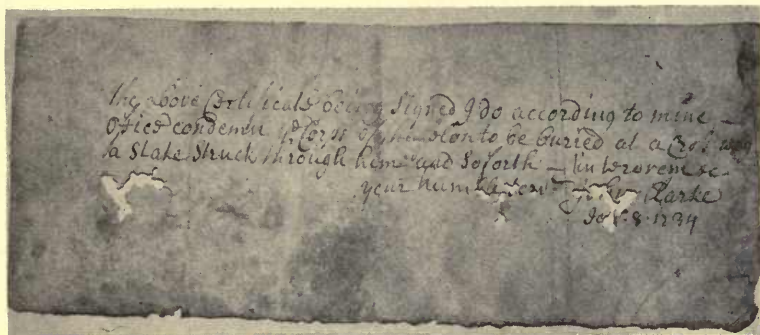 the above Certificate being Signed I do according to mine
office condemn ye Corps of the to be buried at a Cross way
a Stake Struck through him and so forth –
your humble
Clarke
8. 1734